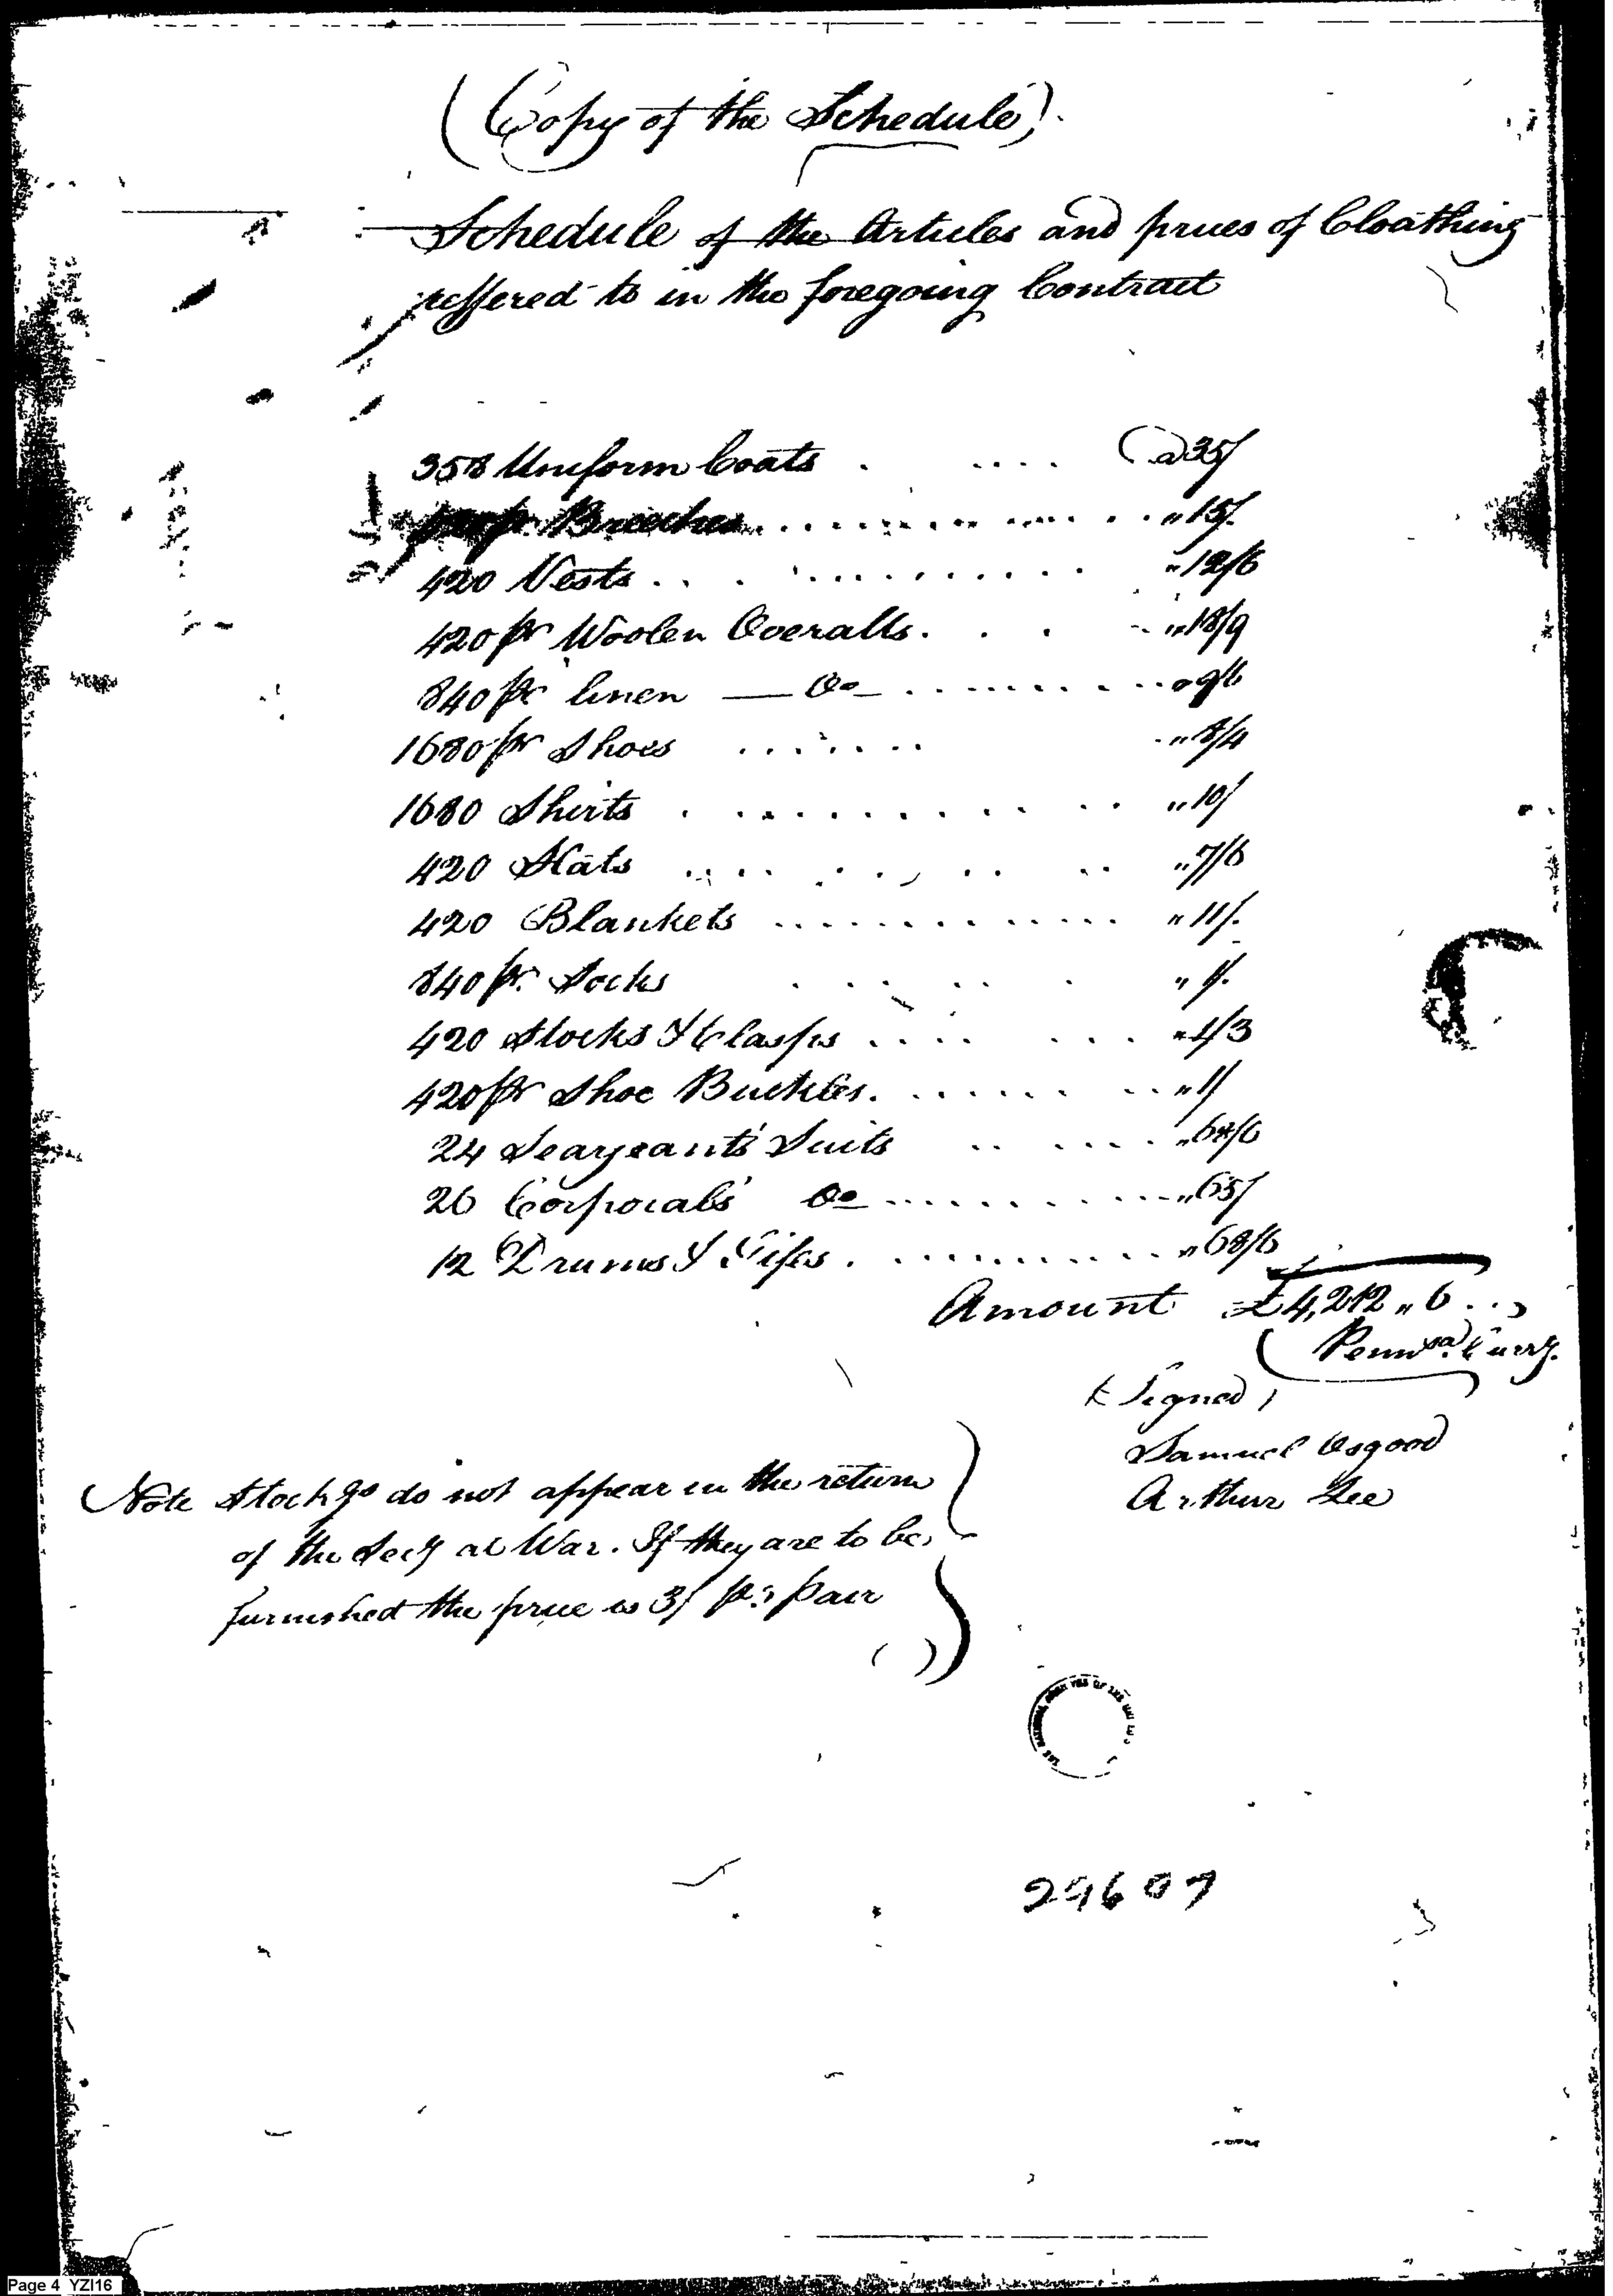 (Copy of the Schedule).
Schedule of the Articles and prices of Cloathing
reffered to in the foregoing Contract
358 Uniform Coats . .... @ 35/
pr. Breeches .............. " 15/.
420 Vests .............. " 12/6
420 pr Woolen Overalls . . . " 18/9
840 pr linen — Do — .......... " 9/6
1680 pr Shoes ....... " 8/4
1680 Shirts ............ " 10/
420 Hats ............ " 7/6
420 Blankets ............. " 11/.
840 pr. Socks ...... " 4/.
420 Stocks & Clasps ....... " 1/3
420 pr Shoe Buckles ......... " 1/
24 Seargeants' Suits ...... " /6
26 Corporals' Do ........... " 65/
12 Drums & Fifes ............ " 68/6
Amount £4,212 " 6 ..
(Pennsa. Curry.
(Signed)
Samuel Osgood
Arthur Lee
Note Stockgs do not appear in the return
of the Secy at War. If they are to be
furnished the price is 3/ pr. pair
THE NATIONAL ARCHIVES OF THE UNITED S
29607
Page 4 YZI16